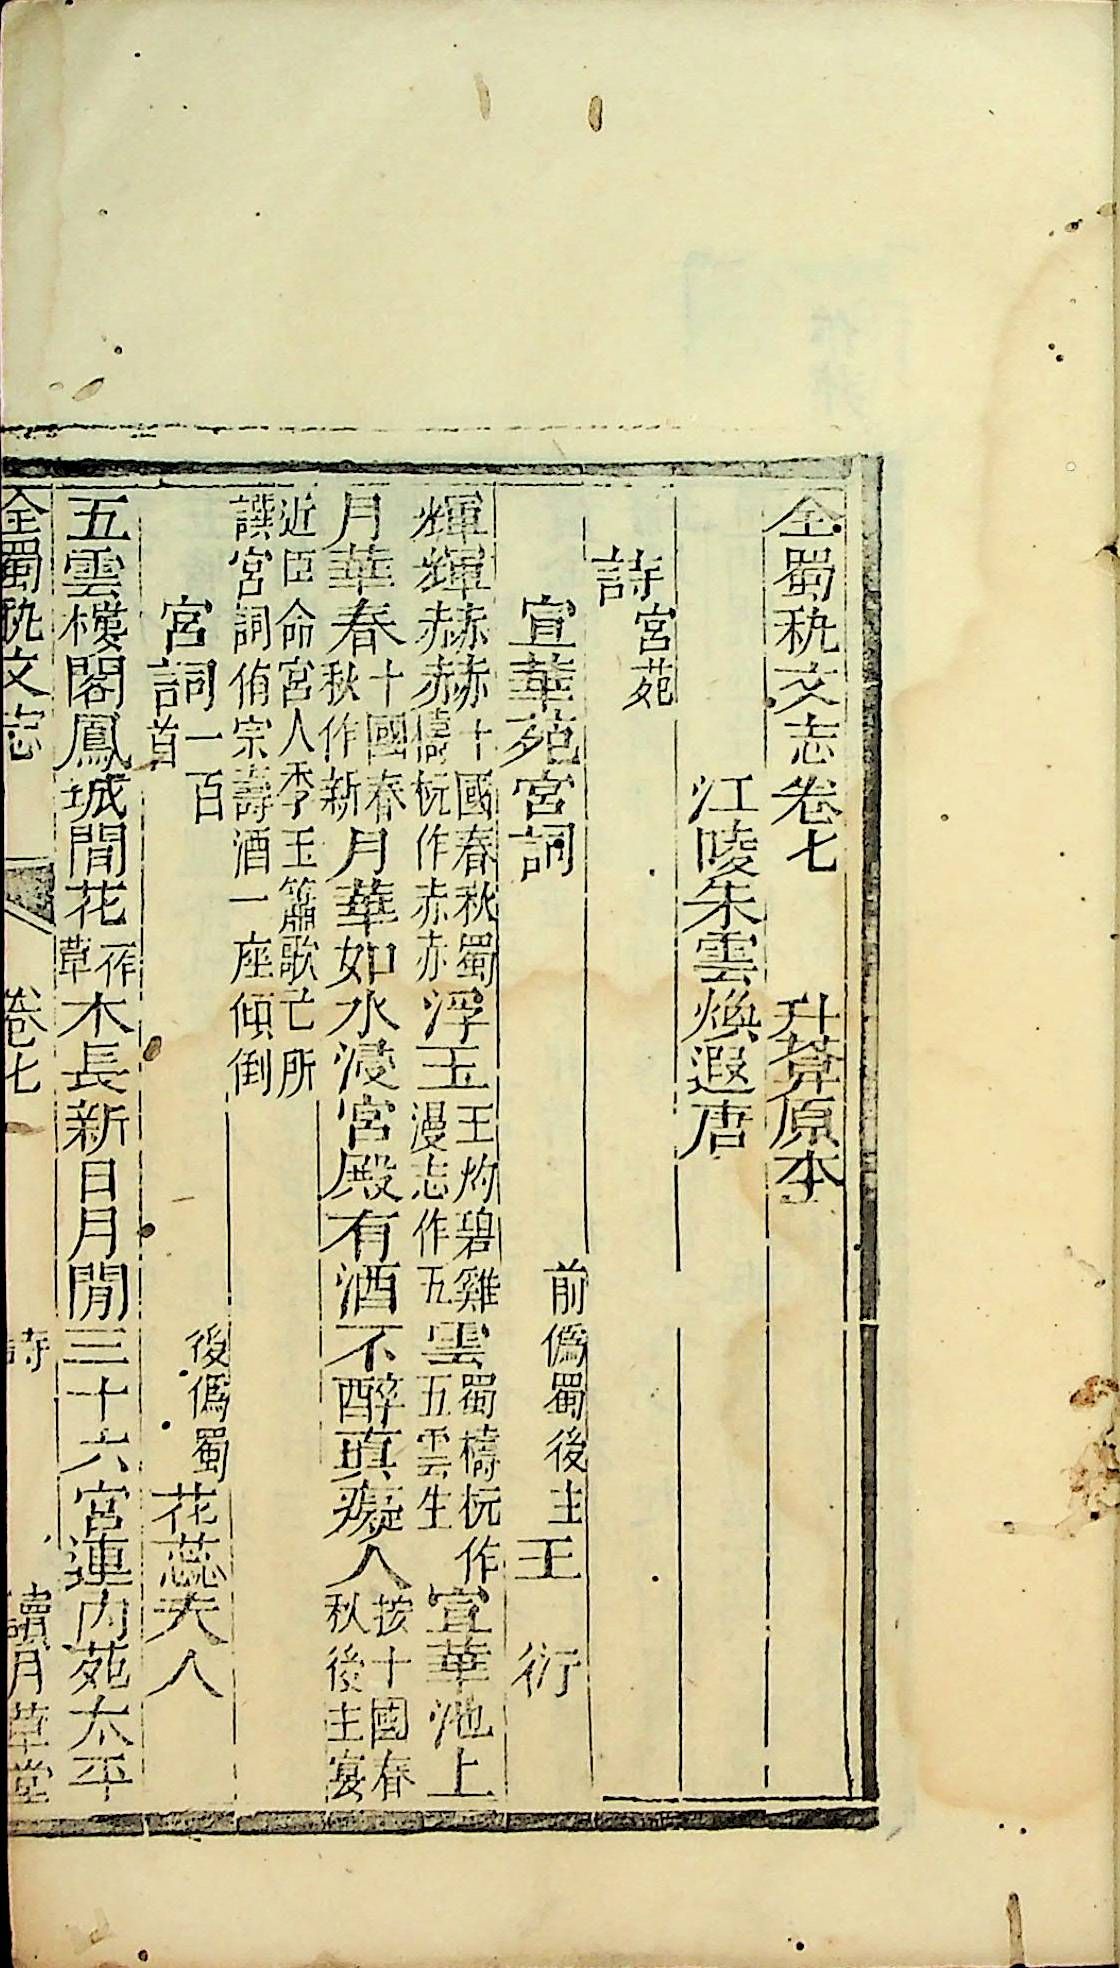 全蜀秇文志卷七　升菴原本
江陵朱雲煥遐唐
詩宮苑
宣華苑宮詞　前僞蜀後主王衍
輝輝赫赫十國春秋蜀檮杌作赤赤浮玉王灼碧雞漫志作五雲蜀檮杌作五雲生宣華池上
月華春十國春秋作新月華如水浸宮殿有酒不醉真癡人按十國春秋後主宴
近臣命宮人李玉簫歌亡所譔宮詞侑宗壽酒一座傾倒
宮詞一百首　後僞蜀花蕊夫人
五雲樓閣鳳城閒花一作草木長新日月閒三十六宮連內苑太平
全蜀秇文志　卷七　詩　讀月草堂